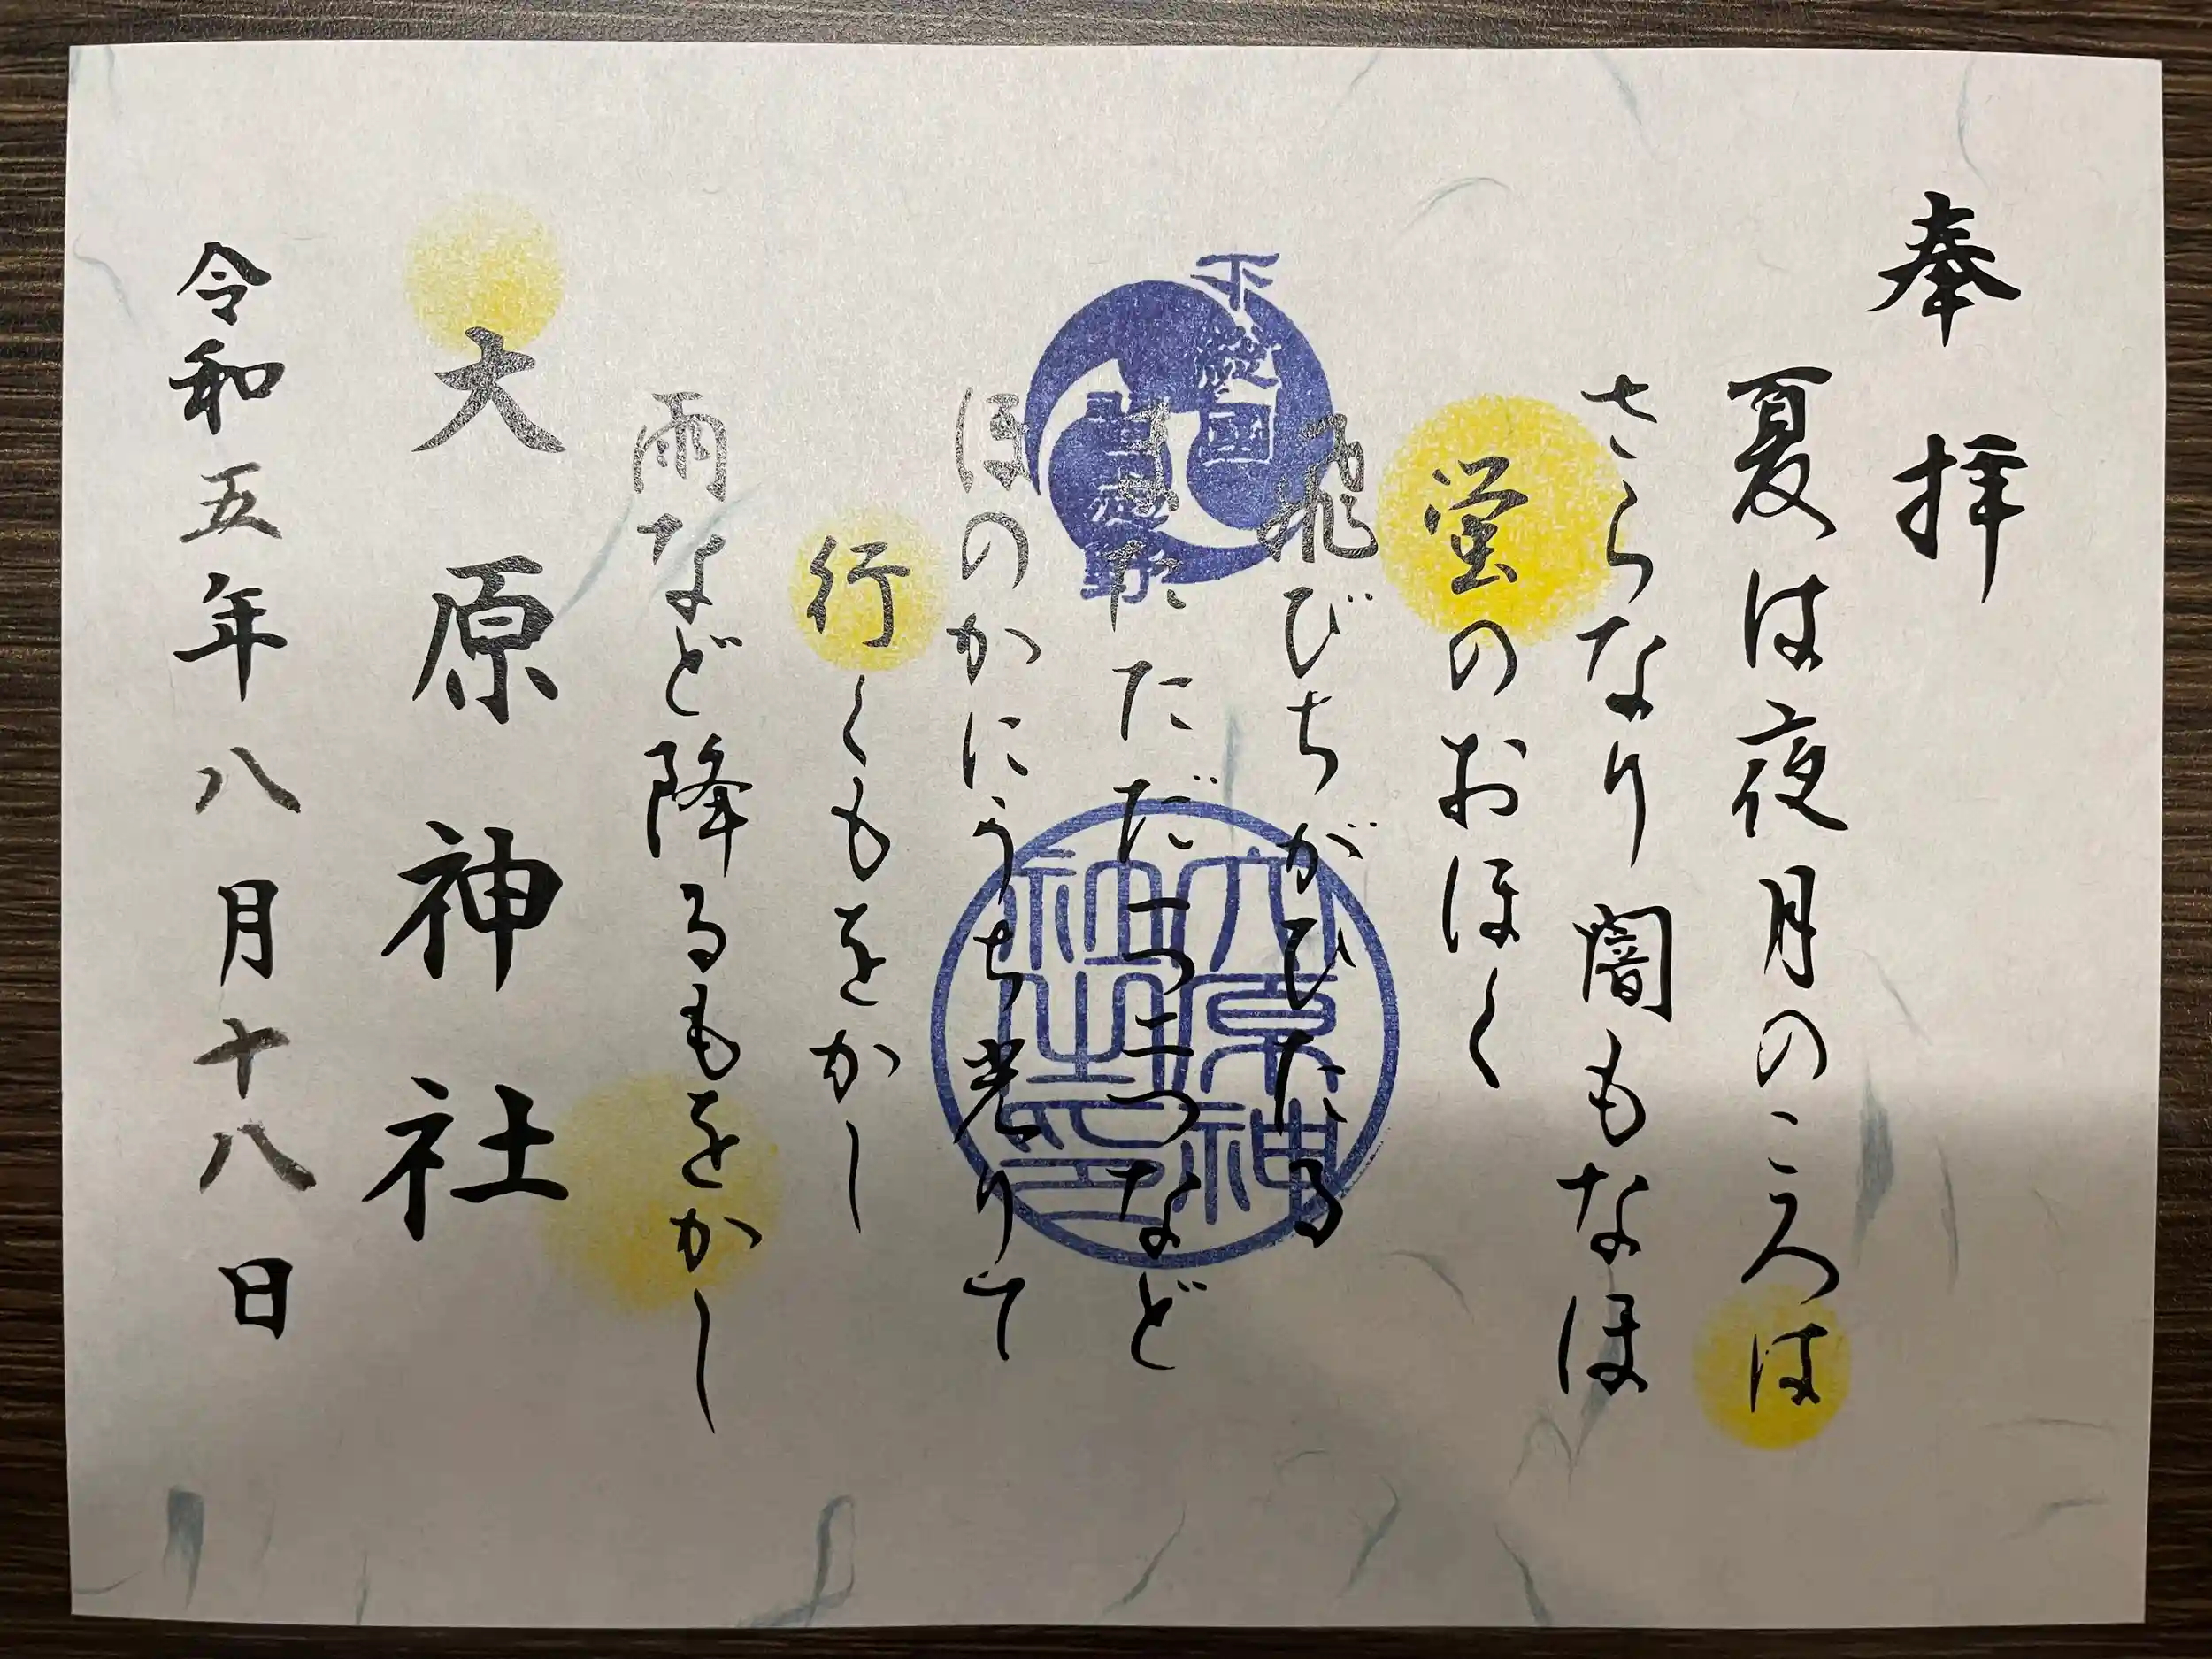 奉拝
夏は夜月のころは
さらなり闇もなほ
蛍のおほく
飛びちがひたる
またただ一つ二つなど
ほのかにうち光りて
行くもをかし
雨など降るもをかし
大原神社
令和五年八月十八日
大原神
社之印